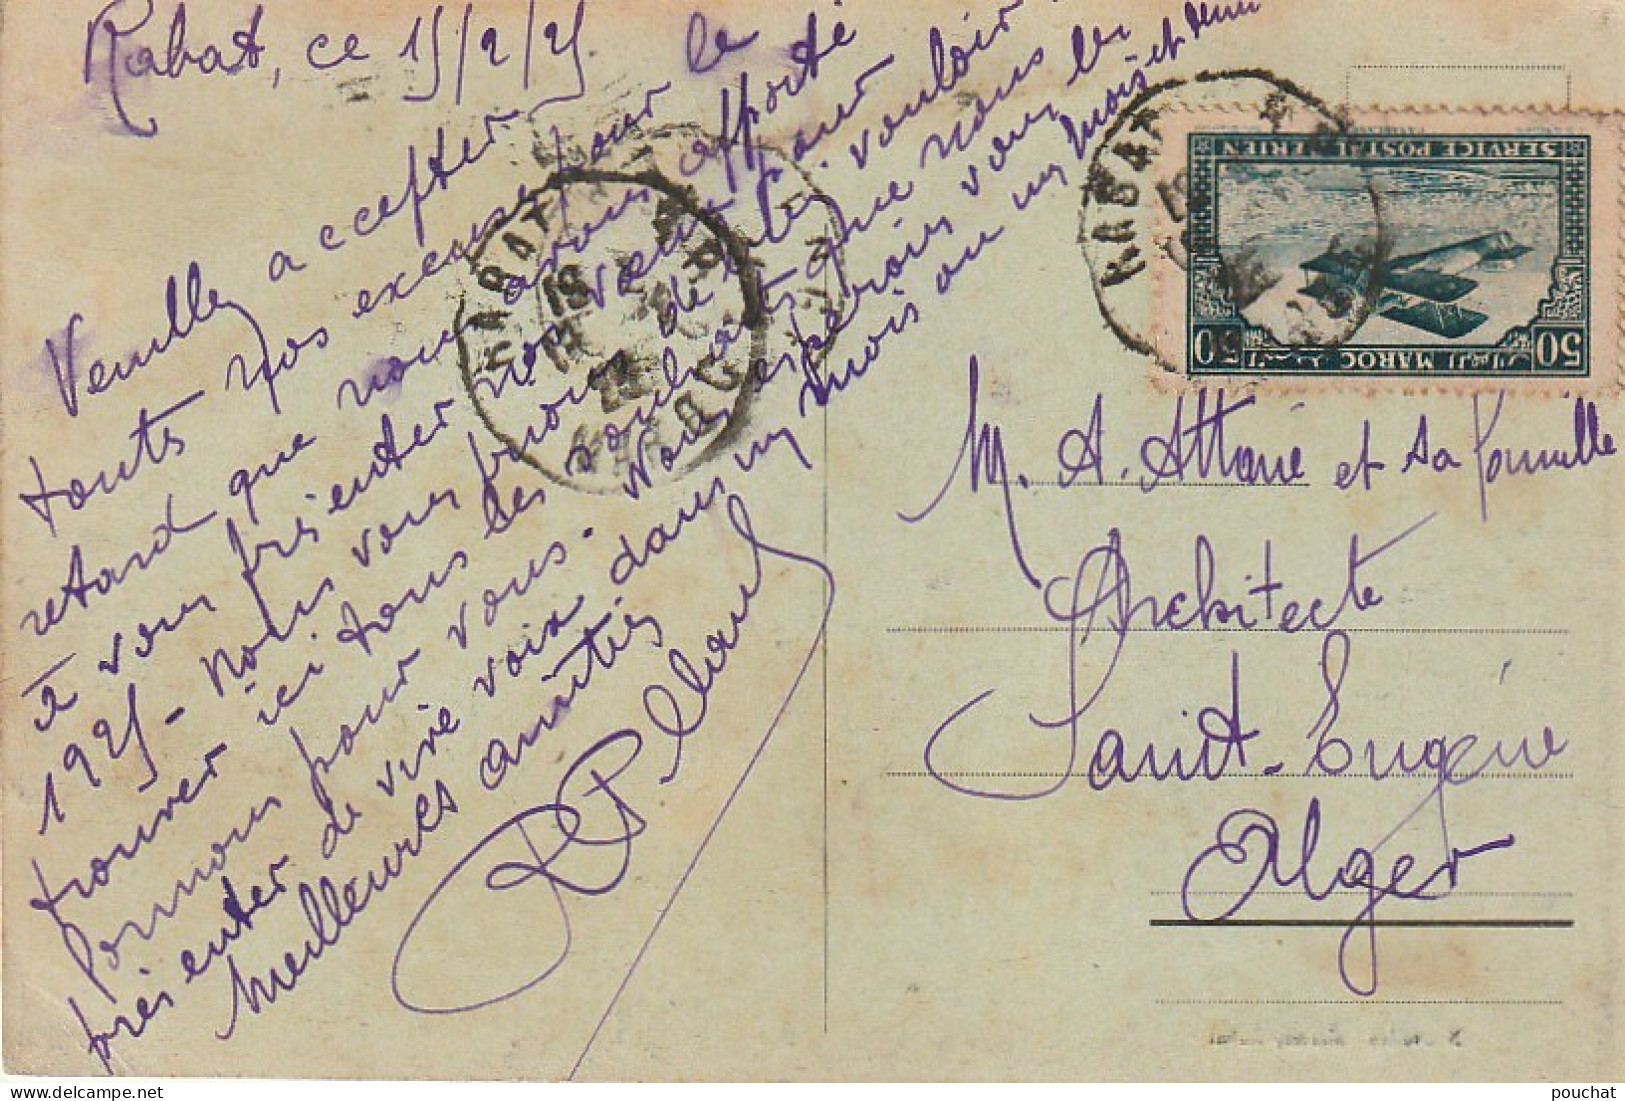 Rabat, ce 15/2/25.
Veuillez accepter
touts nos excuses pour le
retard que nous avons apporté
à vous présenter nos vœux pour
1925 - Nous vous prions de vouloir
trouver ici tous les souhaits que nous
formons pour vous. Nous espérons vous les
présenter de vive voix dans un mois ou un mois et demi
Meilleures amitiés
M. A. Attané et sa famille
Architecte
Saint-Eugène
Alger
SERVICE POSTAL AERIEN
50 MAROC المغرب 50
RABAT
RABAT
pouchat